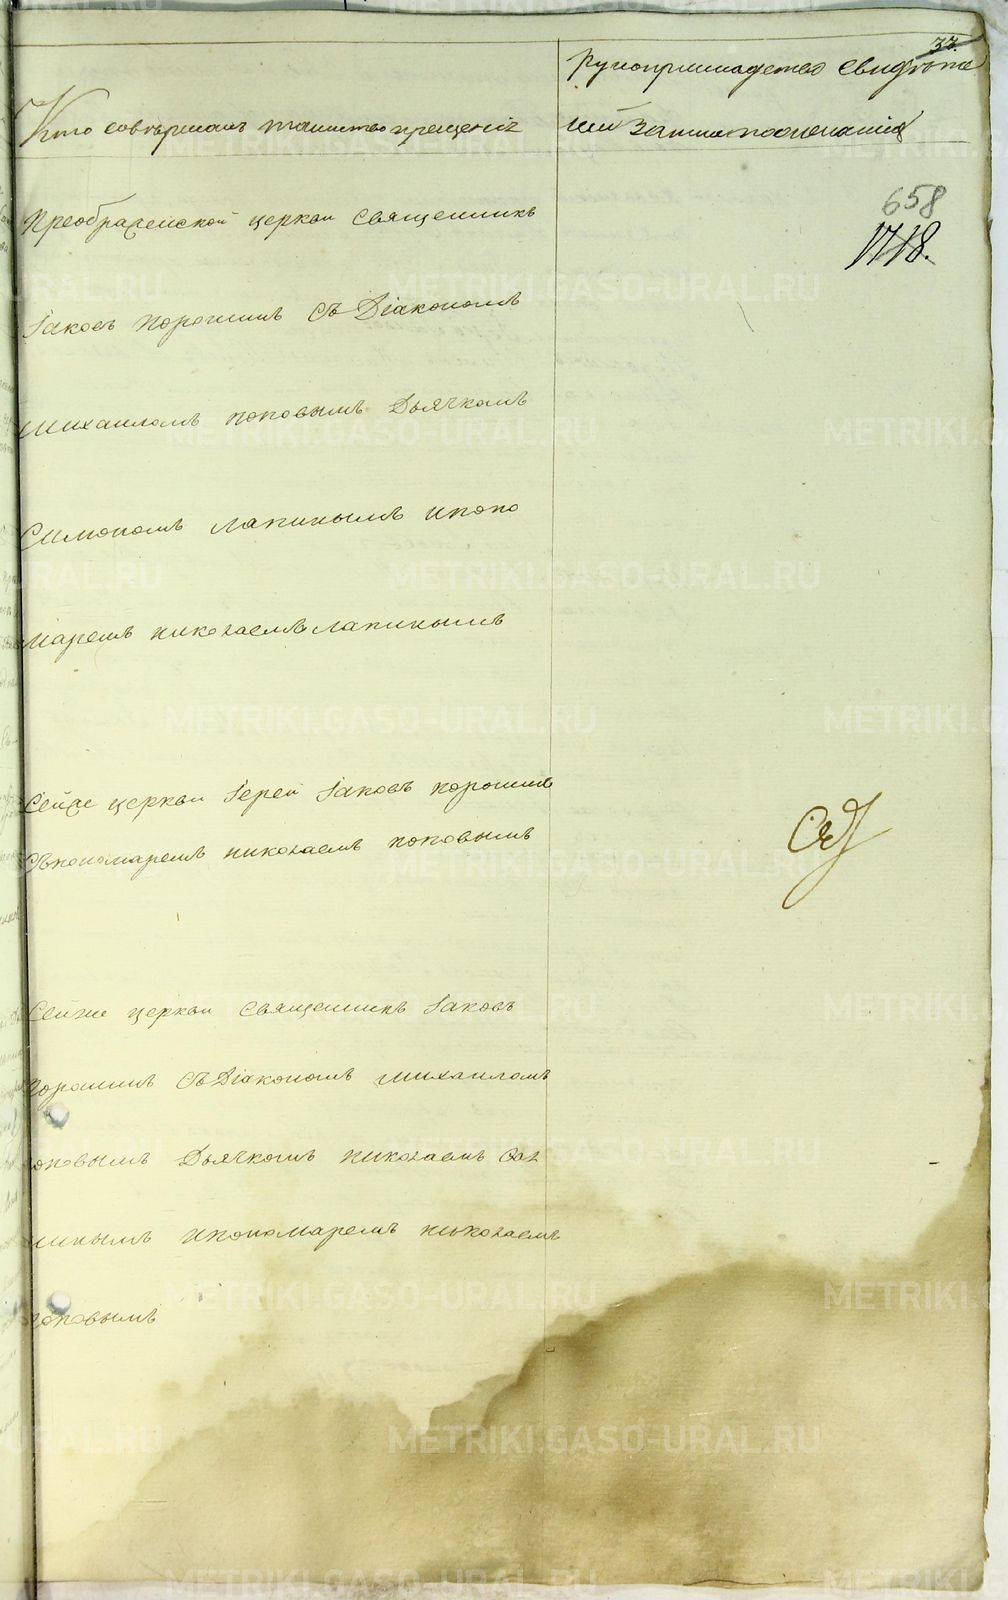 33.
Кто совершалъ таинство крещенія
Рукоприкладство свидѣте
лей записи по желанію
658
1718.
Преображенской церкви священникъ
Іаковъ Порошинъ съ Діакономъ
Михаиломъ Поповымъ Дьячкомъ
Симономъ Лапинымъ и поно
маремъ Николаемъ Лапинымъ
Сейже церкви Іерей Іаковъ Порошинъ
съ пономаремъ Николаемъ Поповымъ
Сейже церкви священникъ Іаковъ
Порошинъ съ Діакономъ Михаиломъ
Поповымъ Дьячкомъ Николаемъ
иным и пономаремъ Николаемъ
Поповымъ
METRIKI.GASO-URAL.RU